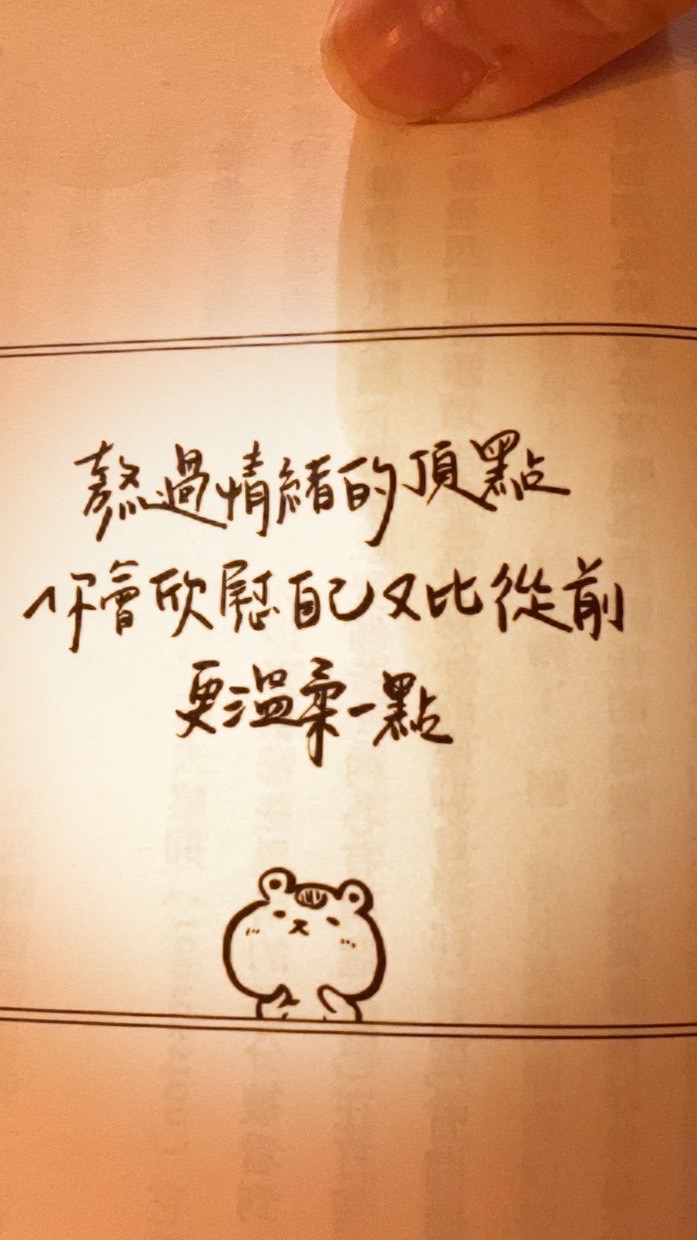 熬過情緒的頂點
你會欣慰自己又比從前
更溫柔一點